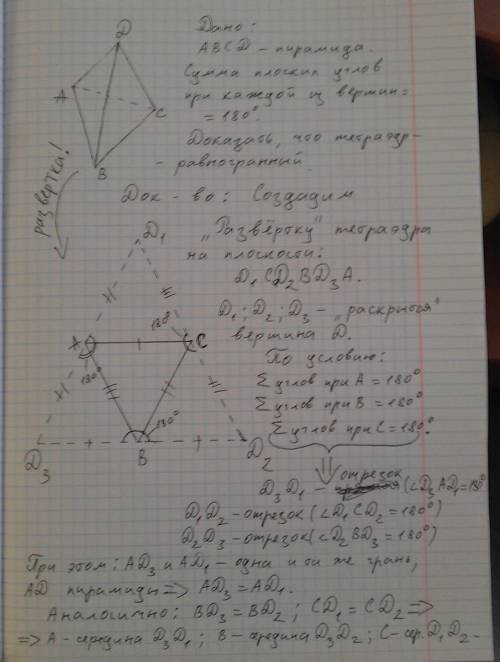 D
A
C
B
Дано:
ABCD – пирамида.
Сумма плоских углов
при каждой из вершин =
= 180°.
Доказать, что тетраэдр –
– равногранный.
развертка!
Док-во: Создадим
„Развёртку" тетраэдра
на плоскости:
D₁CD₂BD₃A.
D₁; D₂; D₃ – „раскрытая"
вершина D.
По условию:
Σ углов при A = 180°
Σ углов при B = 180°
Σ углов при C = 180°.
D₁
A
C
180°
180°
180°
D₃
B
D₂
отрезок
D₃D₁ – (∠D₃AD₁=180°
D₁D₂ – отрезок (∠D₁CD₂ = 180°)
D₂D₃ – отрезок (∠D₂BD₃ = 180°)
При этом: AD₃ и AD₁ – одна и та же грань,
AD пирамиды => AD₃ = AD₁.
Аналогично: BD₃ = BD₂; CD₁ = CD₂ =>
=> A – середина D₃D₁; B – середина D₃D₂; C – сер. D₁D₂ –